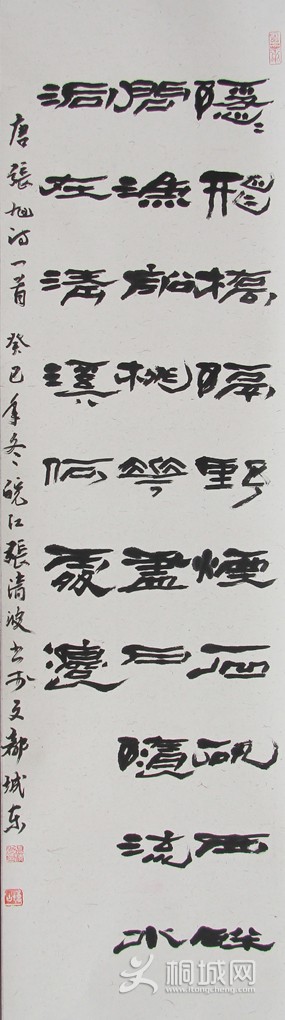 隱〻飛橋隔野煙石磯西畔
問漁船桃華盡日隨流水
洞在清溪何處邊
唐張旭詩一首 癸巳年冬 皖江張濤波書於文都城東
桐城网
itongcheng.com